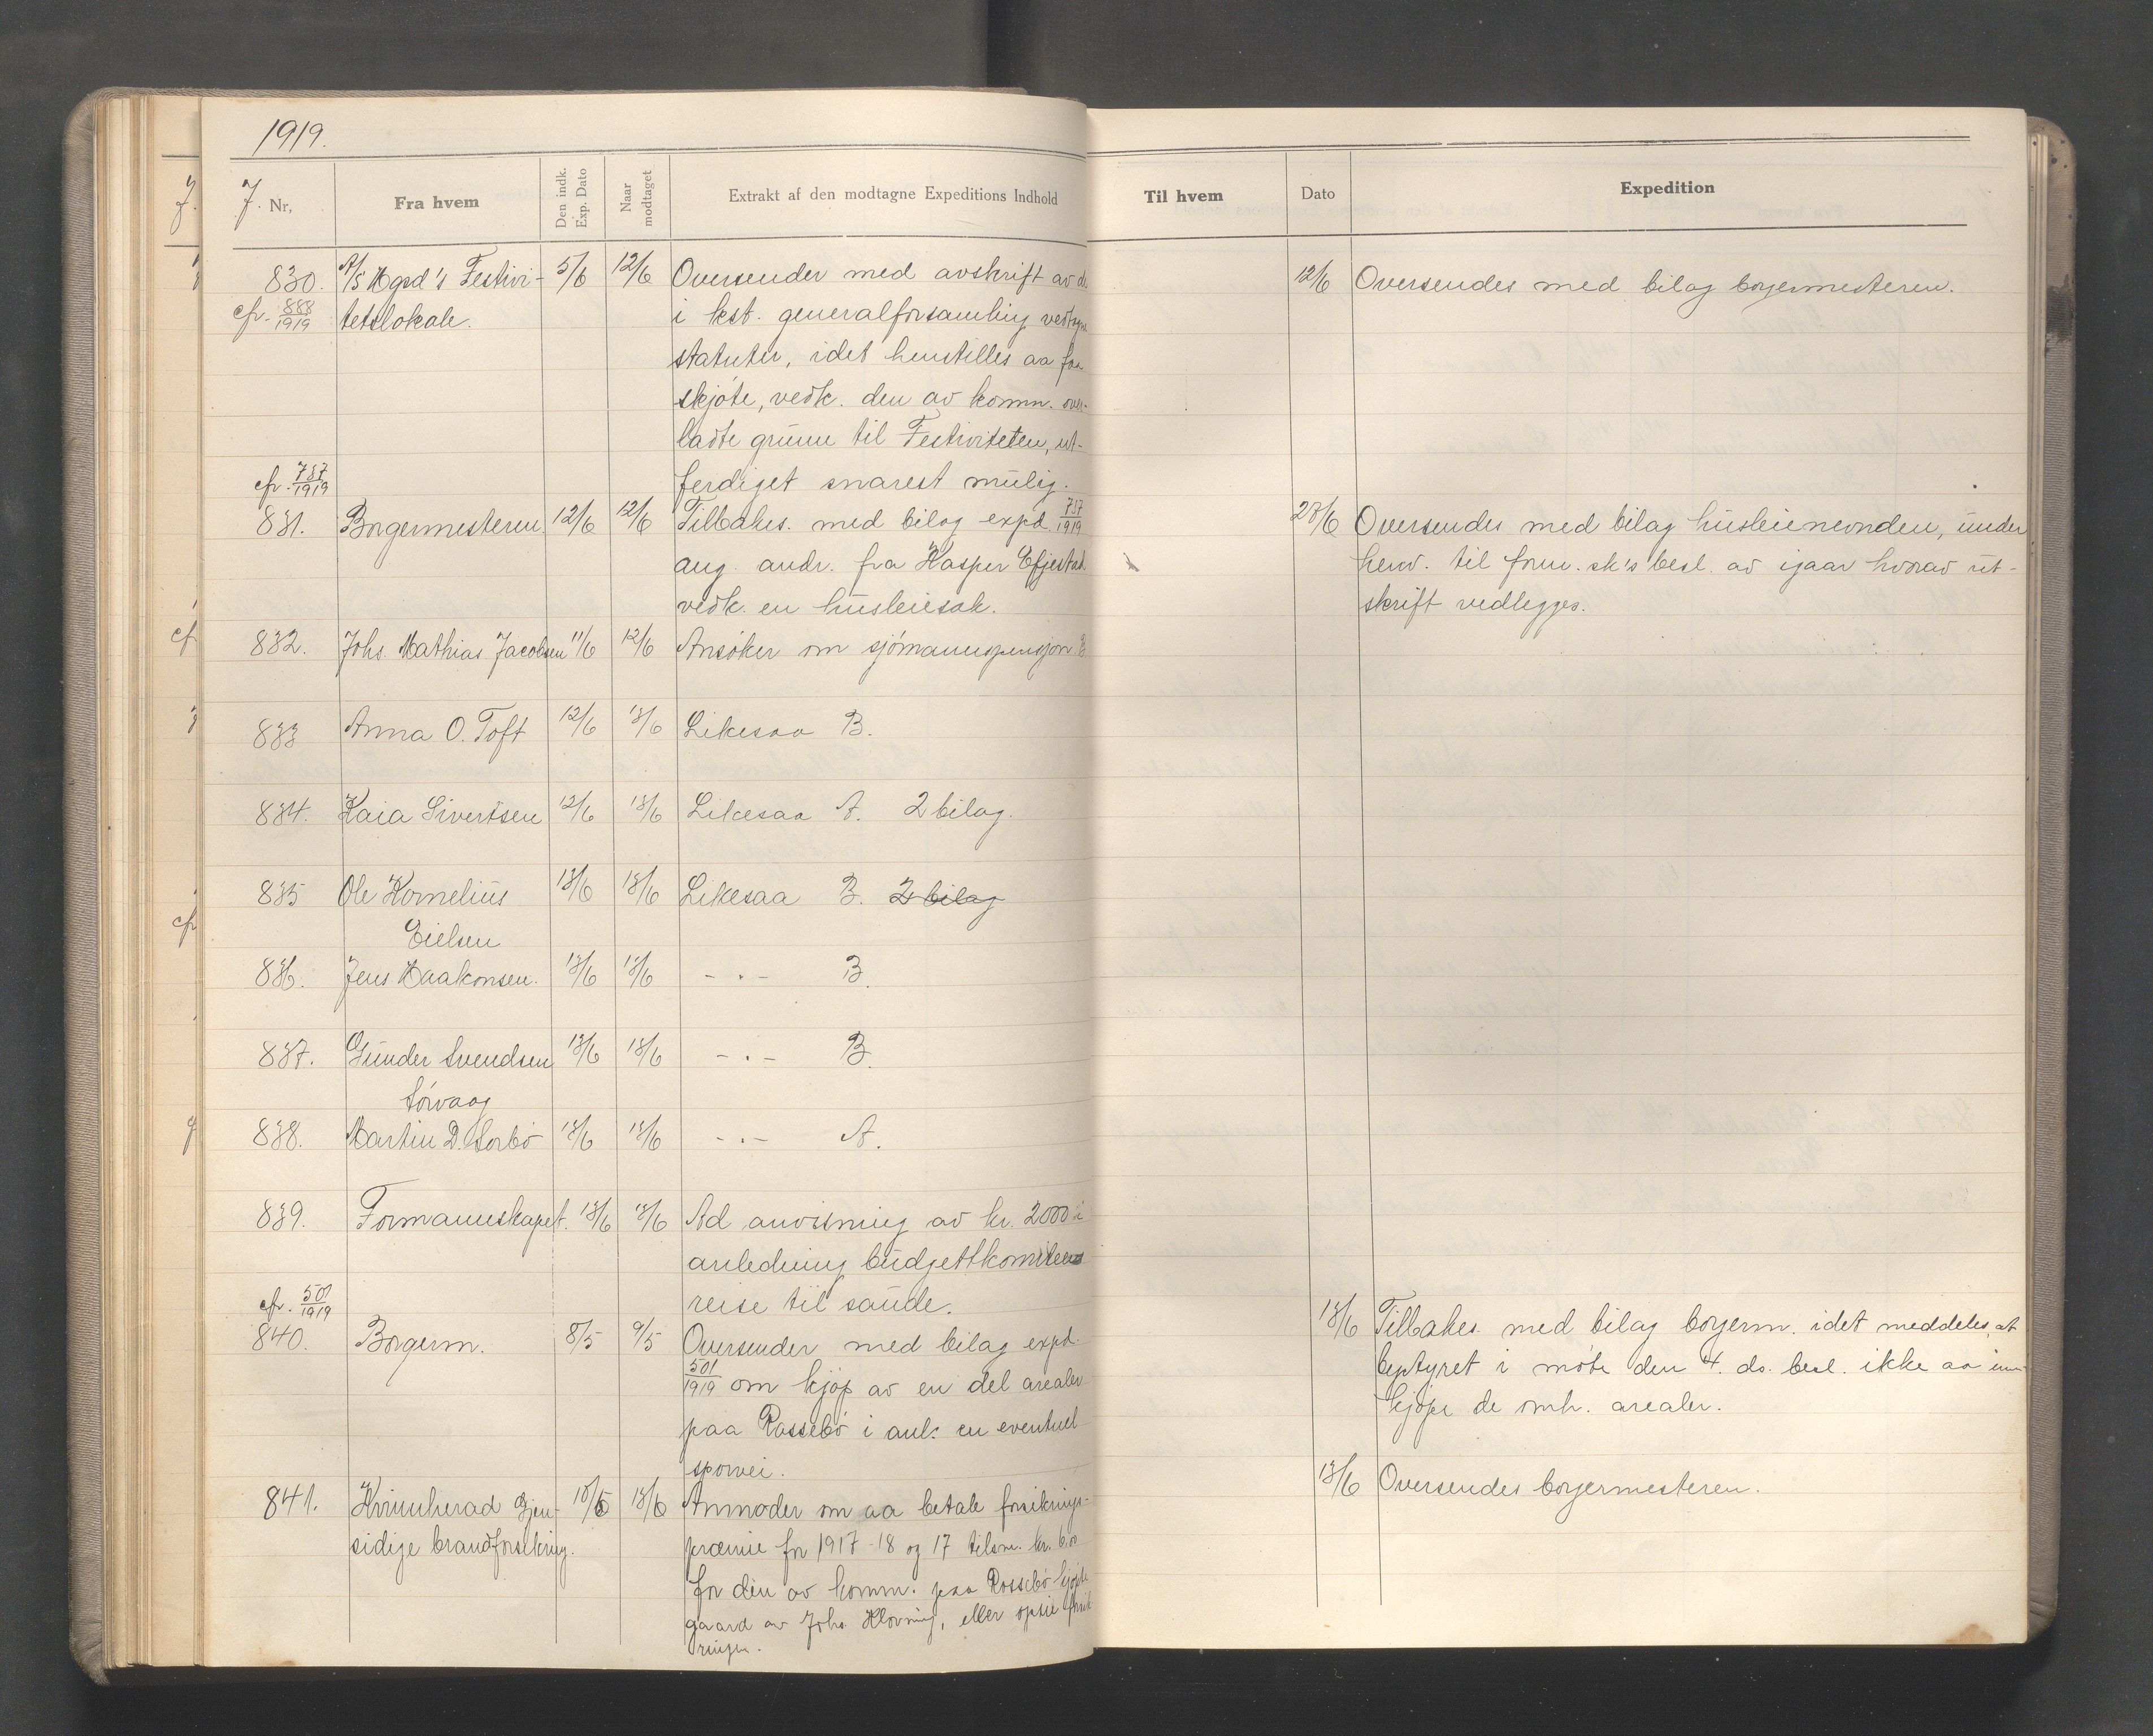 1919.
J. Nr,
Fra hvem
Den indk. Exp. Dato
Naar modtaget
Extrakt af den modtagne Expeditions Indhold
Til hvem
Dato
Expedition
830. A/S Hgsd's Festivi- 5/6 12/6 Oversender med avskrift av de
cfr. 888/1919 tetslokale. i kst. generalforsamling vedtagne
statuter, idet henstilles aa faa
skjöte, vedk. den av komm. over-
ladte grunn til Festiviteten, ut-
ferdiget snarest mulig.
12/6 Oversendes med bilag borgermesteren.
cfr. 787/1919
831. Borgermesteren. 12/6 12/6 Tilbakes. med bilag expd. 737/1919
ang. andr. fra Kasper Efjestad
vedk. en husleiesak.
28/6 Oversendes med bilag husleienevnden, under
henv. til form.sk's besl. av igaar hvorav ut-
skrift vedlegges.
832. Johs. Mathias Jacobsen 11/6 12/6 Ansöker om sjömannspensjon B
833 Anna O. Toft 12/6 13/6 Likesaa B.
834. Kaia Sivertsen 12/6 13/6 Likesaa A. 2 bilag.
835 Ole Kornelius 13/6 13/6 Likesaa B. 2 bilag
Eielsen
836. Jens Haakonsen. 13/6 13/6 - . - B.
837. Gunder Svendsen 13/6 13/6 - . - B.
Sörvaag
838. Martin D. Sorbö 13/6 13/6 - . - A.
839. Formannskapet. 13/6 13/6 Ad anvisning av kr. 2000 i
anledning budgettkomiteens
reise til saude.
cfr. 501/1919
840. Borgerm. 8/5 9/5 Oversender med bilag expd.
501/1919 om kjöp av en del arealer
paa Rossebö i anl. en eventuel
sporvei.
13/6 Tilbakes. med bilag borgerm. idet meddeles, at
bystyret i möte den 4. ds. besl. ikke aa inn-
kjöpe de omh. arealer.
841. Kvinnherad Gjen- 10/6 13/6 Anmoder om aa betale forsikrings-
sidige brandforsikring. præmie for 1917-18 og 17 tilsm. kr.
for den av komm. paa Rossebö kjöpte
gaard av Johs. Klovning, eller opsie forsik
ringen.
13/6 Oversendes borgermesteren.